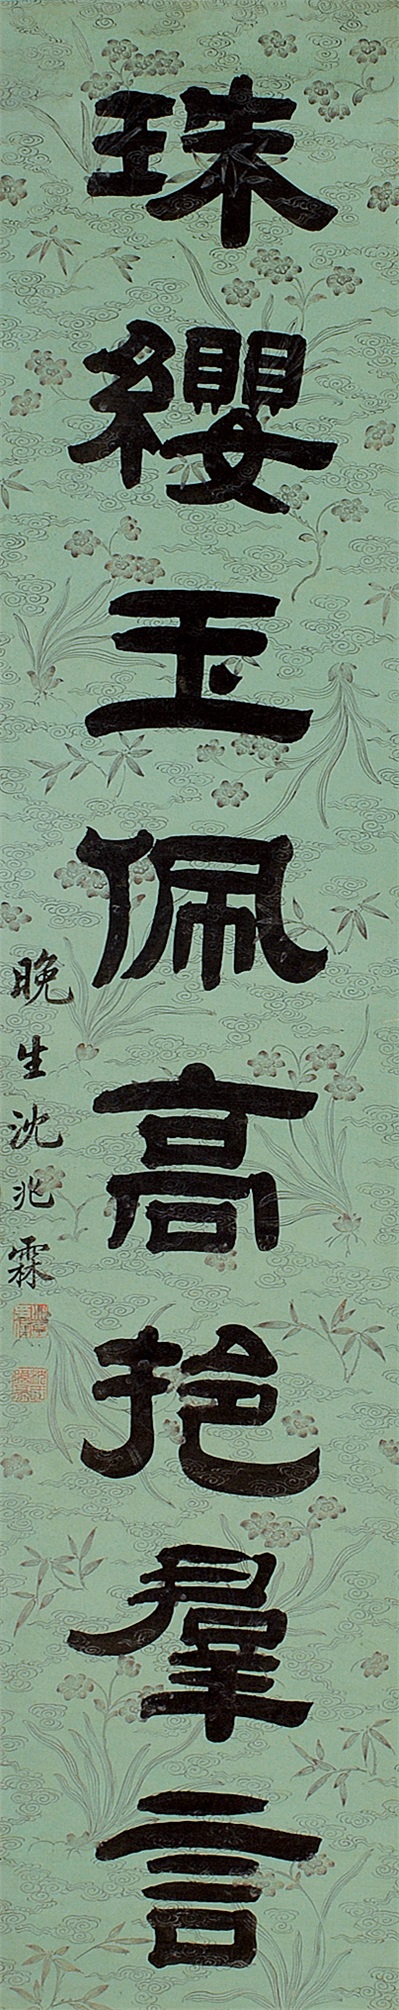 珠纓玉佩高挹羣言
晚生沈兆霖